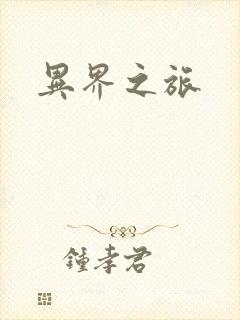 異界之旅
鍾孝君